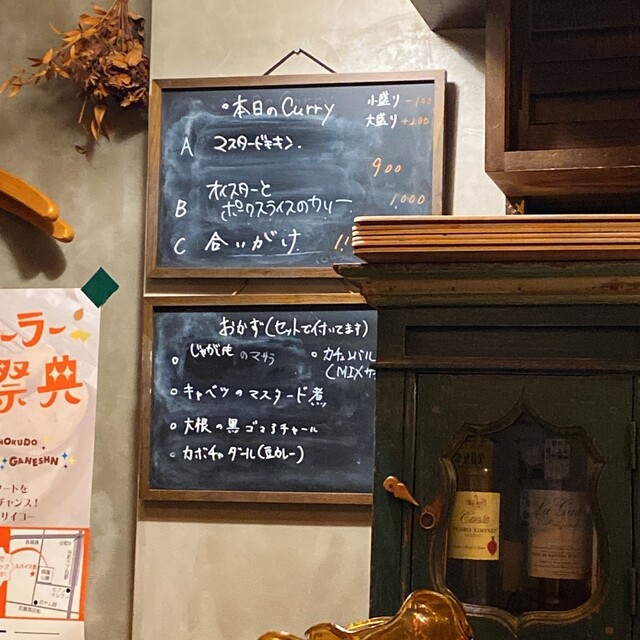 本日のCurry
小盛り -100
大盛り +200
A マスタードチキン.
900
オイスターと
B ポークスライスのカリー 1,000
C 合いがけ 11
おかず(セットで付いてます)
じゃが芋のマサラ
カチュンバル
(MIXサ
キャベツのマスタード煮
大根の黒ゴマアチャール
カボチャダール(豆カレー)
ーラー
祭典
HOKUDO
GANESHN
ードを
チャンス!
サイヨー